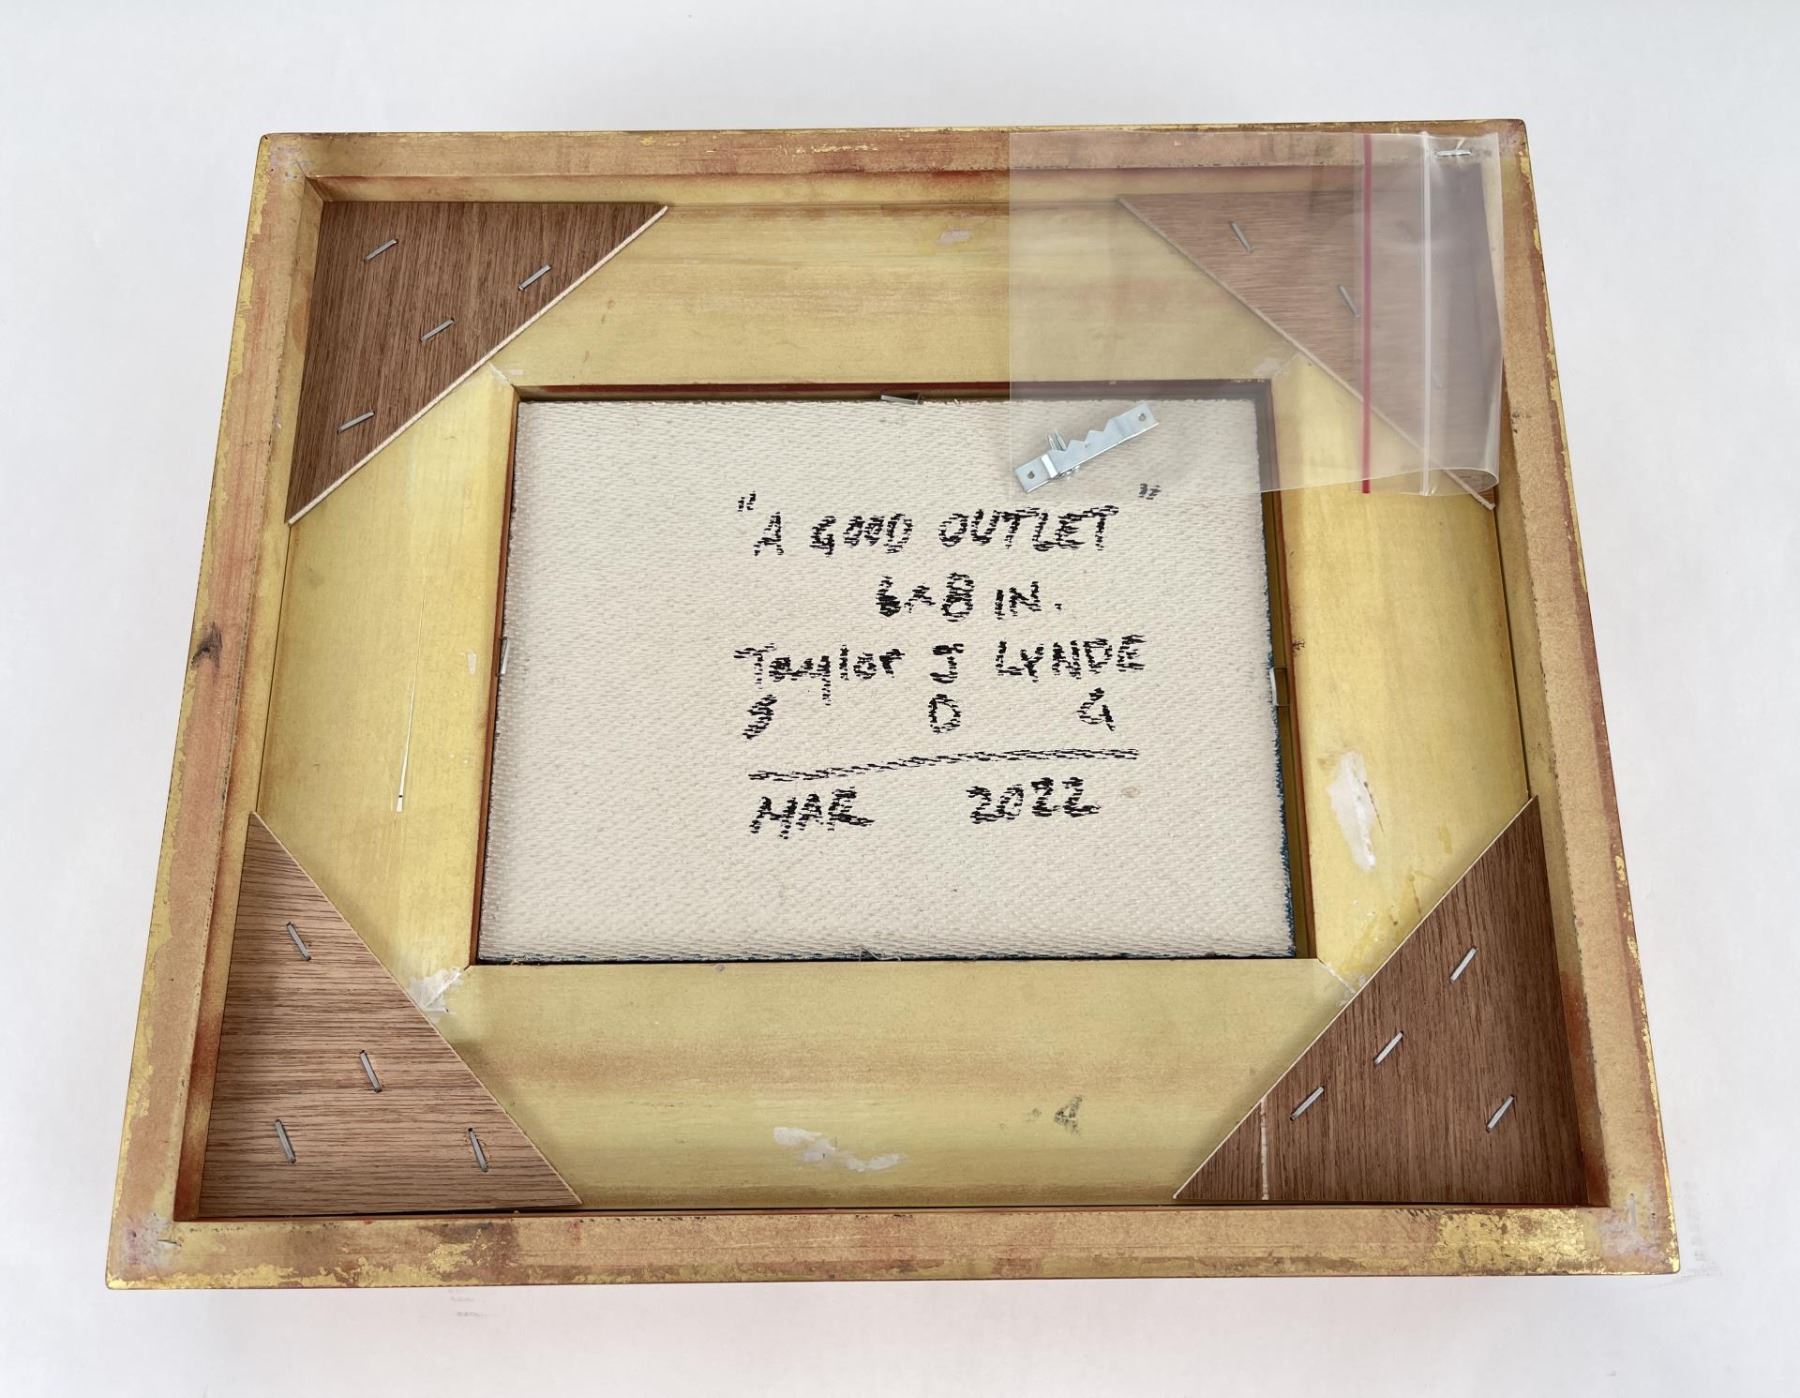 "A GOOD OUTLET"
6x8 IN.
Taylor J LYNDE
D
MAR 2022
4